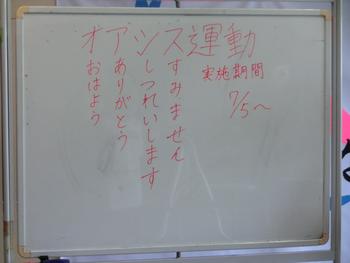 オアシス運動
実施期間
7/5～
すみません
しつれいします
ありがとう
おはよう